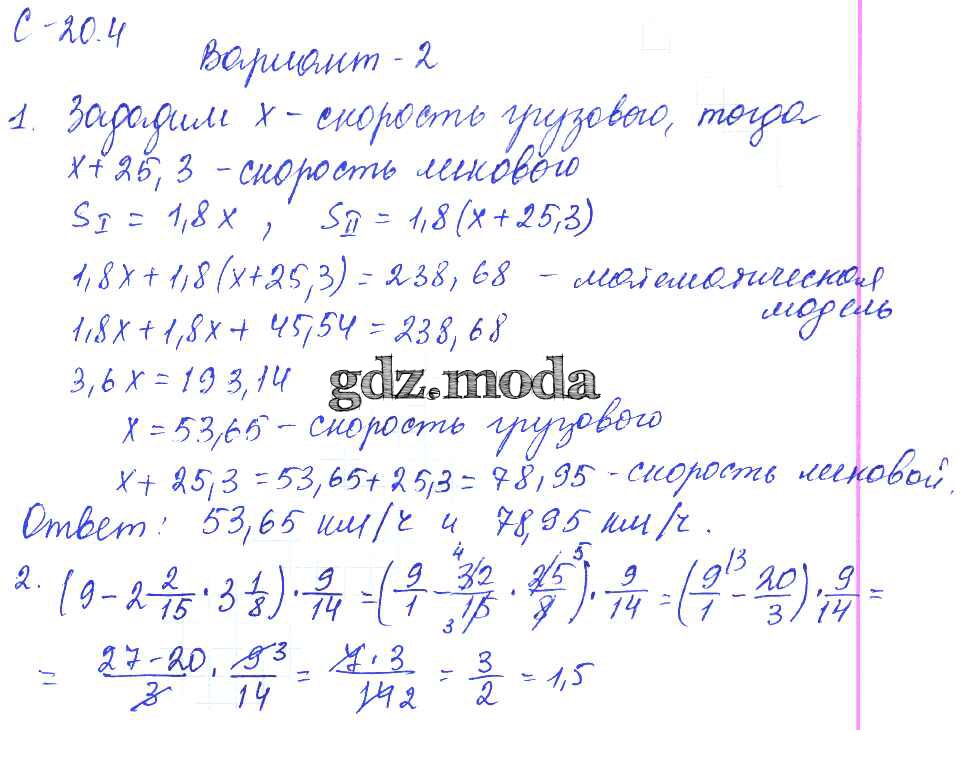 С-20.4
Вариант-2
1. Зададим x - скорость грузового, тогда
x+25,3 - скорость легкового
S_I = 1,8x , S_II = 1,8(x+25,3)
1,8x+1,8(x+25,3)=238,68 - математическая
модель
1,8x+1,8x+45,54=238,68
3,6x=193,14
gdz.moda
x=53,65 - скорость грузового
x+25,3=53,65+25,3=78,95 - скорость легковой.
Ответ: 53,65 км/ч и 78,95 км/ч.
2. (9-2 2/15 · 3 1/8) · 9/14 = (9/1 - 32/15 · 25/8) · 9/14 = (9/1 - 20/3) · 9/14 =
= 27-20/3 · 9/14 = 7·3/14 = 3/2 = 1,5